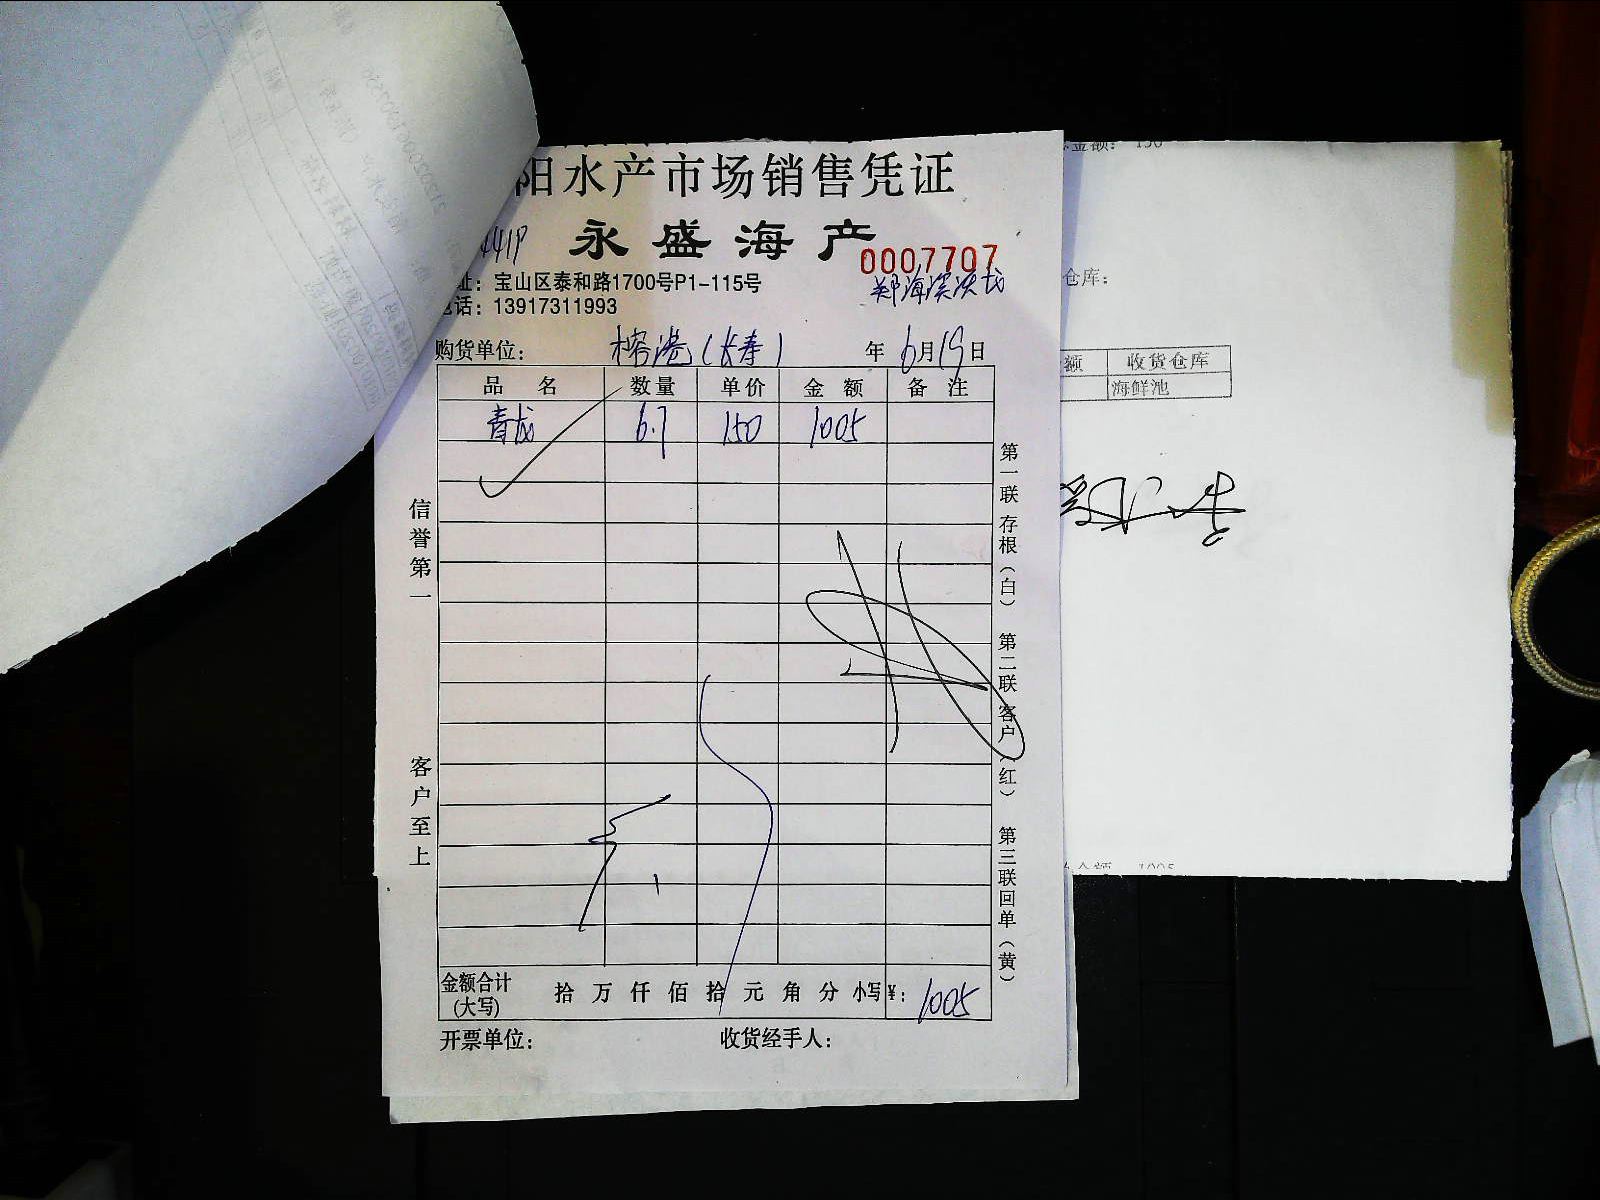 阳水产市场销售凭证
永盛海产
0007707
址：宝山区泰和路1700号P1-115号
话：13917311993
购货单位： 榕港(长寿) 年6月19日
品名 数量 单价 金额 备注
青龙 6.7 150 1005
信誉第一
客户至上
第一联存根（白） 第二联客户（红） 第三联回单（黄）
金额合计(大写) 拾万仟佰拾元角分 小写¥： 1005
开票单位： 收货经手人：
金额： 150
仓库：
额 收货仓库
海鲜池
金额 1005